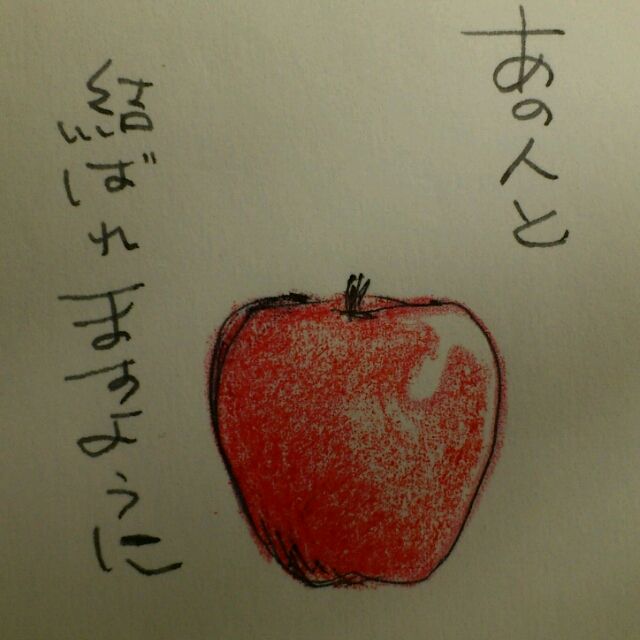 あの人と
結ばれますように